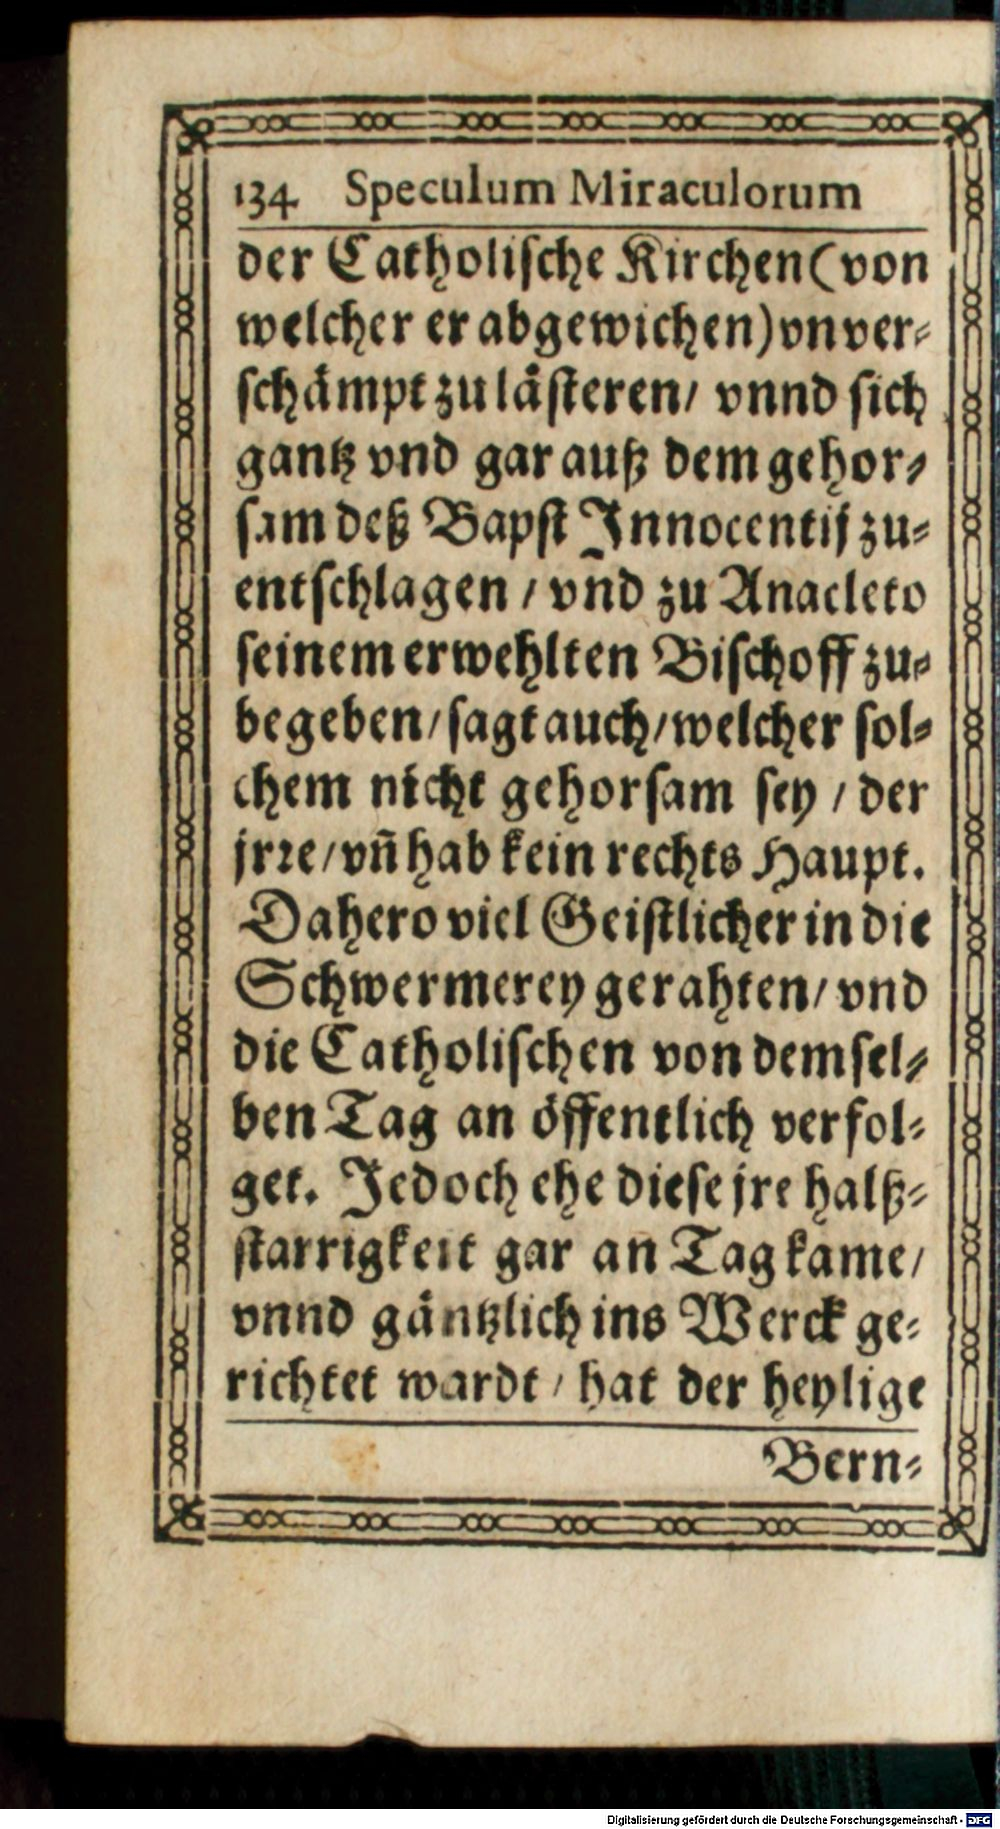 134 Speculum Miraculorum
der Catholische Kirchen (von
welcher er abgewichen) vnver-
schämpt zu lästeren/ vnnd sich
gantz vnd gar auß dem gehor-
sam deß Bapst Innocentij zu-
entschlagen / vnd zu Anacleto
seinem erwehlten Bischoff zu-
begeben/ sagt auch/ welcher sol-
chem nicht gehorsam sey / der
jrre/ vñ hab kein rechts Haupt.
Dahero viel Geistlicher in die
Schwermerey gerahten/ vnd
die Catholischen von demsel-
ben Tag an öffentlich verfol-
get. Jedoch ehe diese jre halß-
starrigkeit gar an Tag kame/
vnnd gäntzlich ins Werck ge-
richtet wardt / hat der heylige
Bern-
Digitalisierung gefördert durch die Deutsche Forschungsgemeinschaft - DFG